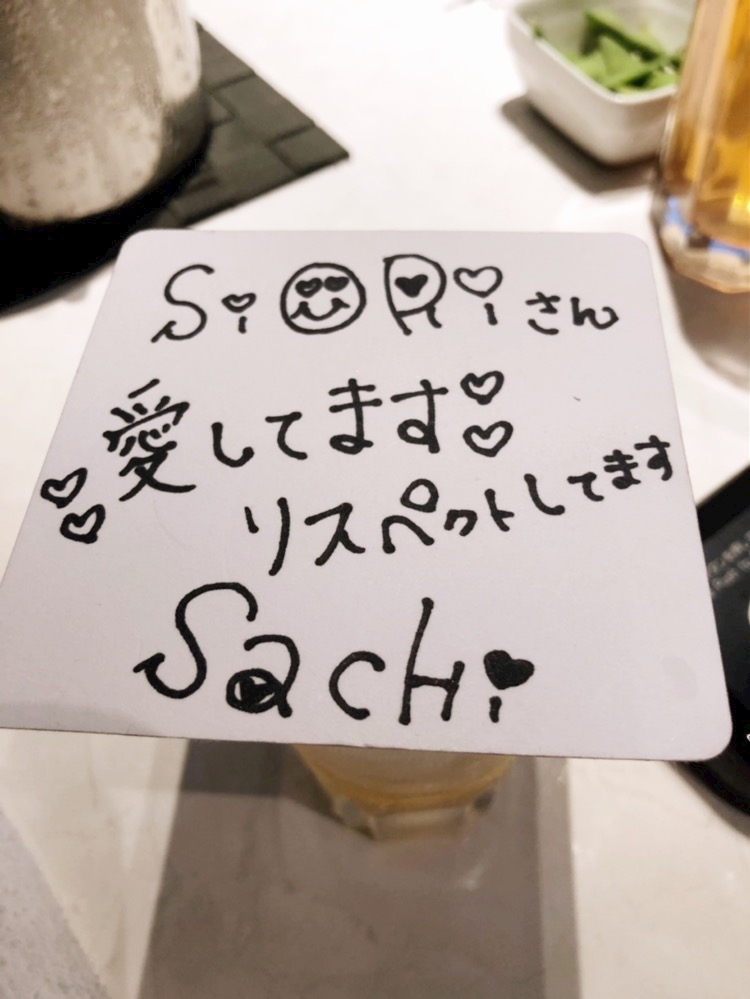 SiORiさん
愛してます♡♡
♡♡リスペクトしてます
SacHi